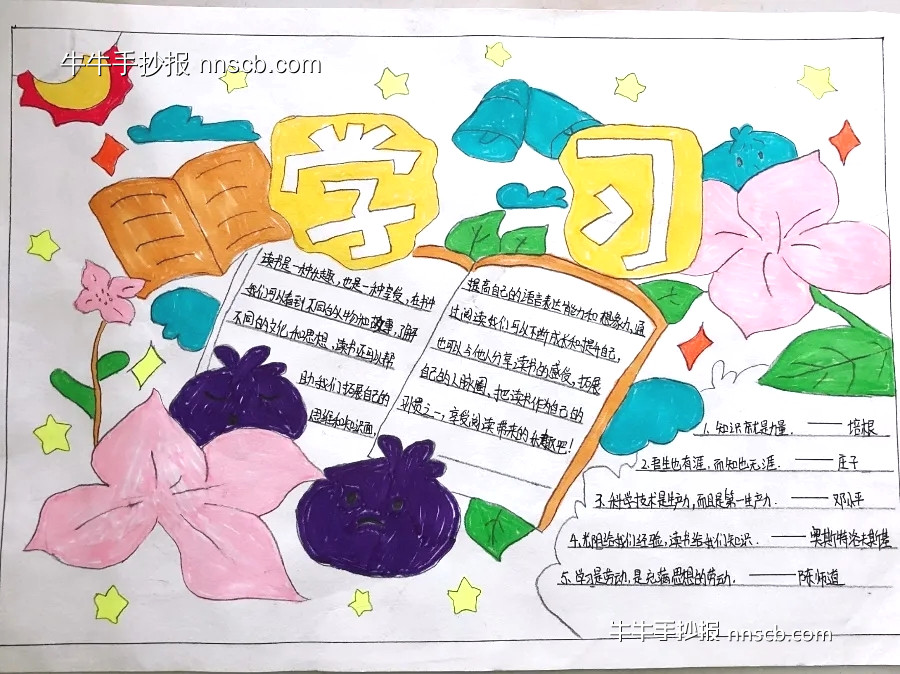 牛牛手抄报 nnscb.com
学习
读书是一种乐趣,也是一种享受,在书中
我们可以看到不同的人物和故事,了解
不同的文化和思想,读书还可以帮
助我们拓展自己的
思维和知识面,
提高自己的语言表达能力和想象力,通
过阅读我们可以不断成长和提升自己,
也可以与他人分享读书的感受,拓展
自己的人脉圈,把读书作为自己的
习惯之一,享受阅读带来的乐趣吧!
1. 知识就是力量. ——培根
2. 吾生也有涯,而知也无涯. ——庄子
3. 科学技术是生产力,而且是第一生产力. ——邓小平
4. 光阴给我们经验,读书给我们知识. ——奥斯特洛夫斯基
5. 学习是劳动,是充满思想的劳动. ——陈师道
牛牛手抄报 nnscb.com